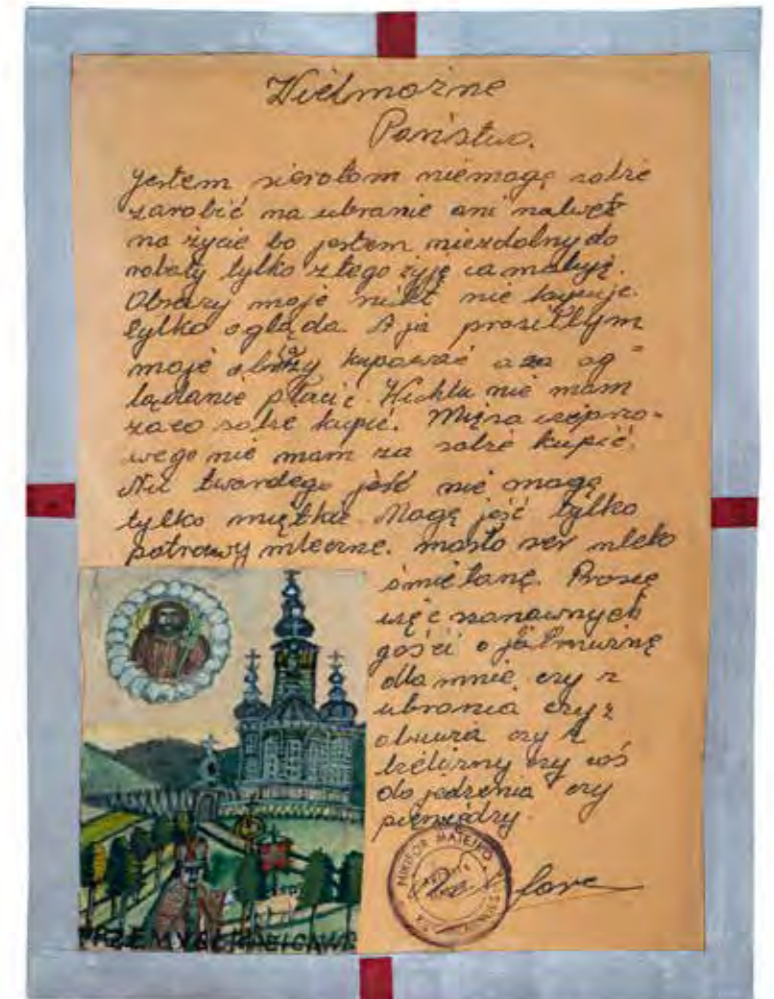 Wielmożne
Państwo.
Jestem sierotom niemogę sobie
zarobić na ubranie ani nalwet
na życie bo jestem niezdolny do
roboty tylko z tego żyję co maluję.
Obrazy moje nikt nie kupuje
tylko ogląda. A ja prosiłbym
moje obrazy kupować a za og=
lądanie płacić. Wichtu nie mam
zaco sobie kupić. Mięsa wieprzo-
wego nie mam za sobie kupić.
Nic twardego jeść nie mogę
tylko miętkie. Mogę jeść tylko
potrawy mleczne. masło ser mleko
śmietanę. Proszę
więc szanownych
gości o jałmużnę
dla mnie czy z
ubrania czy z
obuwia czy z
bielizny czy coś
do jedzenia czy
pieniędzy.
NIKIFOR MATEJKO
PRZEMYSL